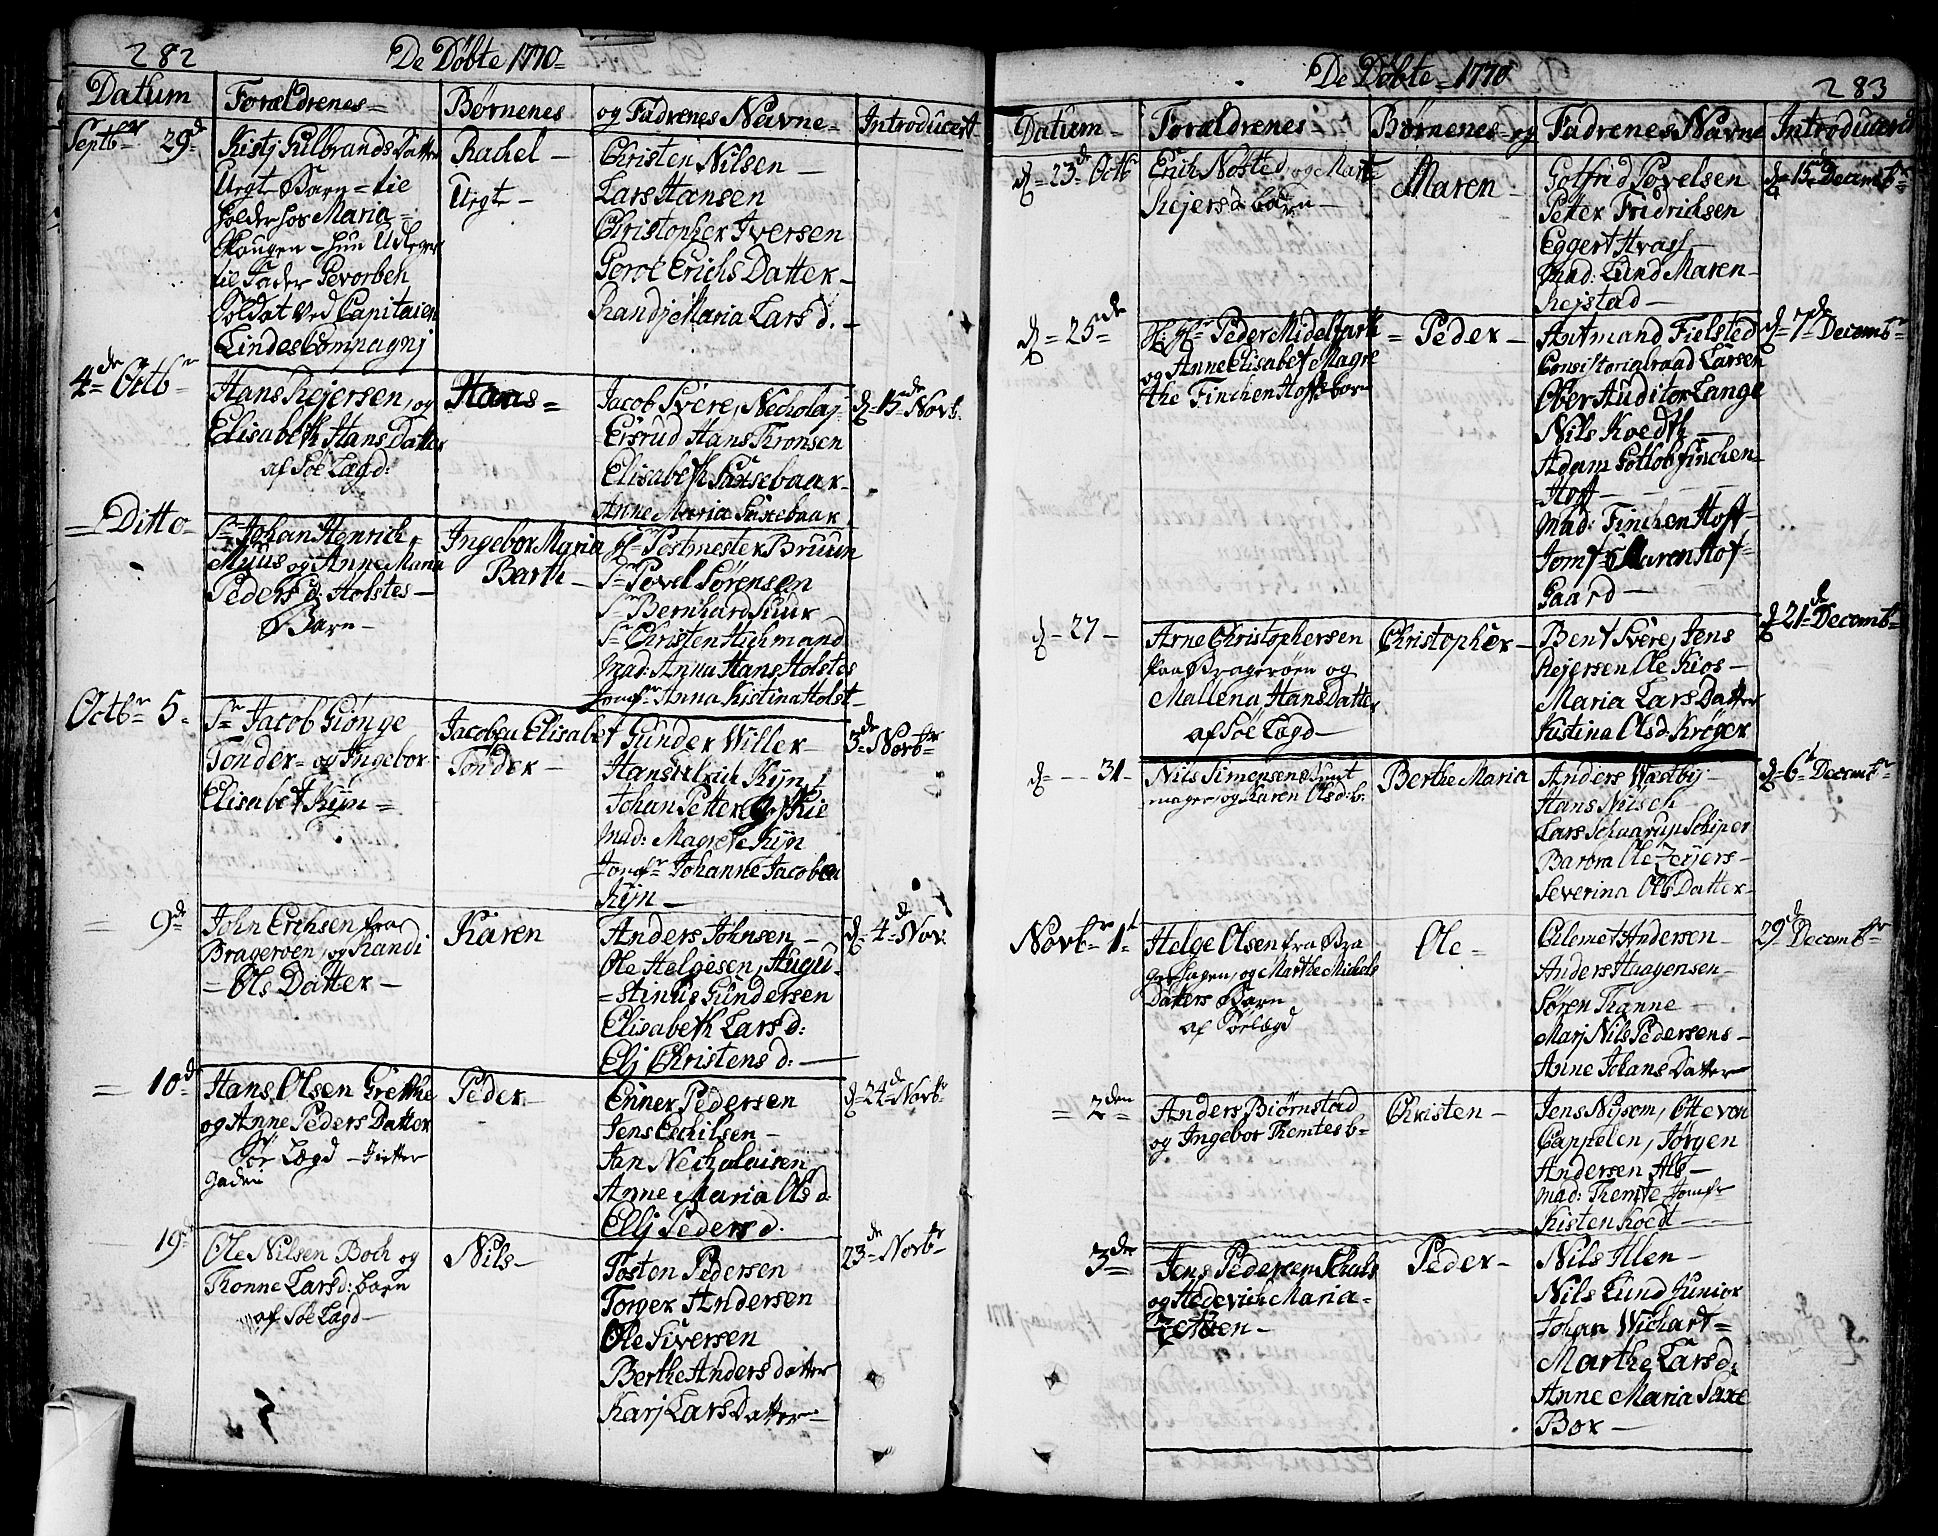 282
De Døbte 1770
Datum
Forældrenes
Børnenes
og Fadrenes Navne
Introducert
Septbr 29d
Kistj Gulbrands Datter
Urgt Barn = lie
holder hos Maria
Skougen - hun Udlegger
til Fader Gevorben
Soldat ved Capitaien
Lindes Compagnj
Rachel
Urgt
Christen Nilsen
Lars Hansen
Christopher Iversen
Goroe Erichs Datter
Randj Maria Lars d.
4de Octbr
Hans Rejersen, og
Elisabeth Hans Datter
af Søe Lægd:
Hans
Jacob Svere, Necholaj
Ersrud Hans Tronsen
Elisabeth Saxsebaar
Anne Maria Saxebaar
d 15de Novb.
Ditto
Sr Johan Henrich
Muus og Anne Maria
Peders d. Holstes
Barn
Ingebor Maria
Barth
Hr Postmester Bruun
Sr Povel Sørensen
Sr Bernhard Suur
Sr Christen Hichmand
Mad: Anna Hans Holstes
Jomfr Anna Kistina Holst
Octbr 5
Sr Jacob Giønge
Tønder og Ingebor
Elisabet Kijn
Jacobea Elisabet
Tønder
Gunder Willer
Hans Ulrich Kijn
Johan Petter
Mad: Magrete Kijn
Jomfr Johanne Jacobea
Kijn
3de Novbr
9de
John Erchsen fra
Brageroen, og Randi
Ols Datter
Karen
Anders Johnsen
Ole Helgesen, Augu
stinus Gundersen
Elisabeth Lars d:
Elj Christens d:
d 4de Nov.
10d
Hans Olsen Grethe
og Anne Peders Datter
Sør Lægd - Titter
gaden
Peder
Enner Pedersen
Jens Echilsen
Jan Necholaisen
Anne Maria Ols d.
Ellj Peders d.
d 24de Novbr
19
Ole Nilsen Boch og
Thonne Larsd: barn
af Søe Lagd
Nils
Tosten Pedersen
Torger Andersen
Ole Siversen
Berthe Anders datter
Karj Lars Datter
23de Novbr
De Døbte 1770
283
Datum
Forældrenes
Børnenes og
Fadrenes Navne
Introducerd
d 23de Octbr
Erich Nøsted, og Marte
Rejers d. barn
Maren
Gotfrid Povelsen
Petter Fridrichsen
Eggert Hvass
Mad: Lund Maren
Rejstad
d 15de Decembr
d 25de
Hr Peder Midelfarth
og Anne Elisabet Magre
the Finchen Hoffs bar
Peder
Amtmand Fielsted
Consistorialraad Larsen
Ober Auditor Lange
Nils Koedt
Adam Gotlob Finchen
Hoff
Mad: Finchen Hoff
Jomf Maren Hof
Gaard
d 7de Decembr
d 27
Arne Christophersen
Paa Bragerøen og
Mallena Hans Datter
af Søe Lagd
Christopher
Bent Svere, Jens
Rejersen Ole Kios
Maria Lars Datter
Kistina Olsd. Krøger
d 21de Decembr
d 31
Nils Simensen
mager, og Karen Olsd: b.
Berthe Maria
Anders Wastbij
Hans Nilsch
Lars Schaarup Schiper
Barbra Ole
Severina Ols Datter
d 6t Decembr
Novbr 1t
Helge Olsen fra Bra
ger hagen, og Marthe Michels
Datters Barn
af Sørlægd
Ole
Clemet Andersen
Anders Haagensen
Søren Thanne
Marj Nils Pedersens
Anne Johans Datter
29de Decembr
2den
Anders Biørnstad
og Ingebor Themtes b
Christen
Jens Nysom, Otte von
Cappelen, Jørgen
Andersen Als
Mad: Themte Jomfr
Kisten Koed
3de
Jens Pedersen Schals
og Hedevich Maria
Peder
Nils Illen
Nils Lund Junior
Johan Wichart
Marthe Lars d:
Anne Maria Saxe
Bor